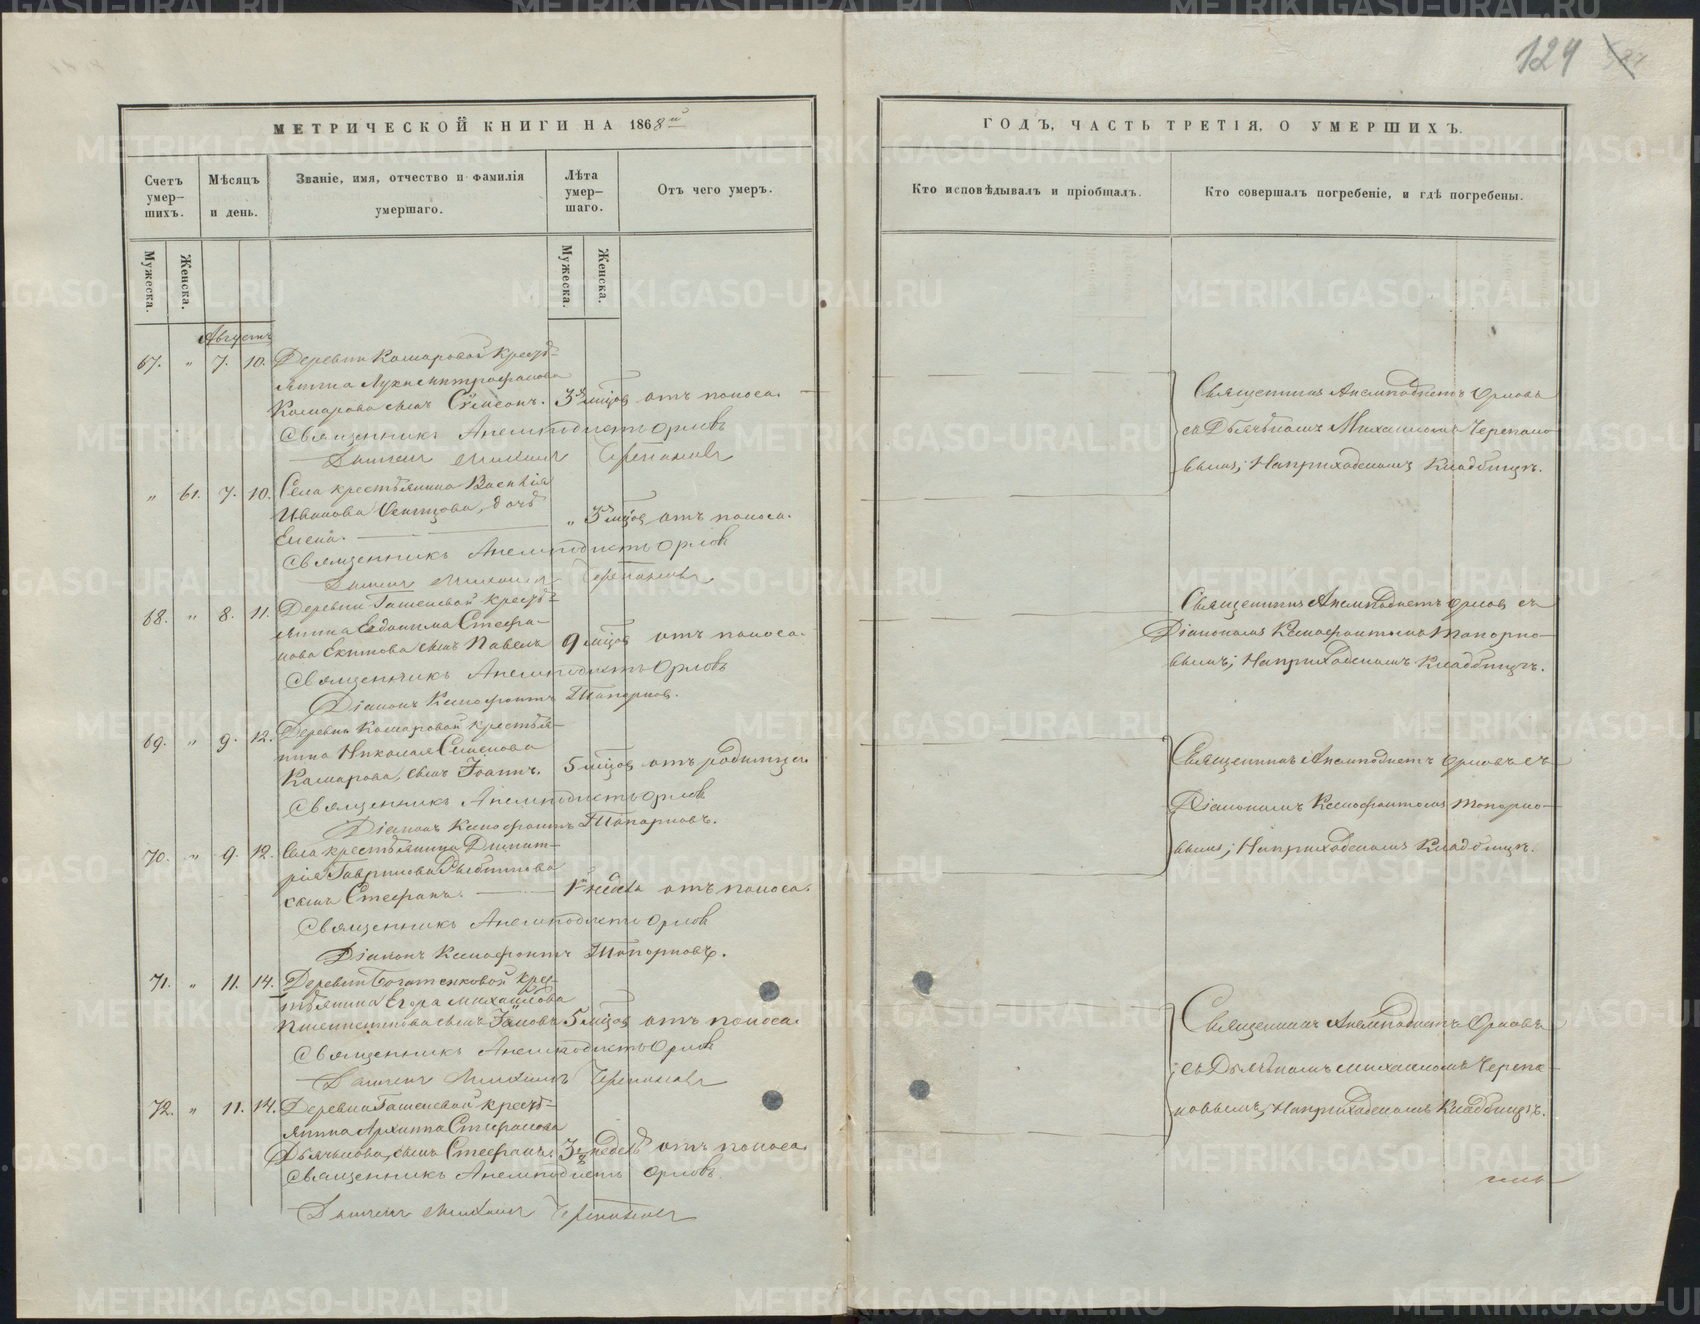 124
МЕТРИЧЕСКОЙ КНИГИ НА 1868й
Счетъ умер-шихъ.
Мѣсяцъ и день.
Званіе, имя, отчество и фамилія умершаго.
Лѣта умер-шаго.
Отъ чего умеръ.
Мужеска.
Женска.
Мужеска.
Женска.
Августъ
67. " 7. 10. Деревни Комаровой кресть-
янина Луки Митрофанова
Комарова сынъ Сѵмеонъ. 3 мѣсяц. отъ поноса.
Священникъ Анемподистъ Орловъ
Дьячекъ Михаилъ Черепановъ
" 61. 7. 10. Села крестьянина Василія
Иванова дочь
Елена. " 3 мѣсяц. отъ поноса.
Священникъ Анемподистъ Орловъ
Дьячекъ Михаилъ Черепановъ
68. " 8. 11. Деревни Гашеневой кресть-
янина Евдокима Стефа-
нова Екимова сынъ Павелъ 9 мѣсяц. отъ поноса.
Священникъ Анемподистъ Орловъ
Діаконъ Ксенофонтъ Топорковъ.
69. " 9. 12. Деревни Комаровой крестья-
нина Николая Семенова
Комарова, сынъ Іоаннъ. 5 мѣсяц. отъ родимца.
Священникъ Анемподистъ Орловъ
Діаконъ Ксенофонтъ Топорковъ.
70. " 9. 12. Села крестьянина Димит-
рія Гаврилова
сынъ Стефанъ. 1 недѣля отъ поноса.
Священникъ Анемподистъ Орловъ
Діаконъ Ксенофонтъ Топорковъ.
71. " 11. 14. Деревни Богатенковой крес-
тьянина Егора Михайлова
сынъ Іаковъ 5 мѣсяц. отъ поноса.
Священникъ Анемподистъ Орловъ
Дьячекъ Михаилъ Черепановъ
72. " 11. 14. Деревни Гашеневой кресть-
янина Архиппа Стефанова
Дьячкова, сынъ Стефанъ. 3 недѣль отъ поноса.
Священникъ Анемподистъ Орловъ.
Дьячекъ Михаилъ Черепановъ
ГОДЪ, ЧАСТЬ ТРЕТІЯ, О УМЕРШИХЪ.
Кто исповѣдывалъ и пріобщалъ.
Кто совершалъ погребеніе, и гдѣ погребены.
Священникъ Анемподистъ Орловъ
съ Дьячкомъ Михаиломъ Черепано-
вымъ; На приходскомъ кладбищѣ.
Священникъ Анемподистъ Орловъ съ
Діакономъ Ксенофонтомъ Топорко-
вымъ; На приходскомъ кладбищѣ.
Священникъ Анемподистъ Орловъ съ
Діакономъ Ксенофонтомъ Топорко-
вымъ; На приходскомъ кладбищѣ.
Священникъ Анемподистъ Орловъ
съ Дьячкомъ Михаиломъ Черепа-
новымъ; На приходскомъ кладбищѣ.
METRIKI.GASO-URAL.RU